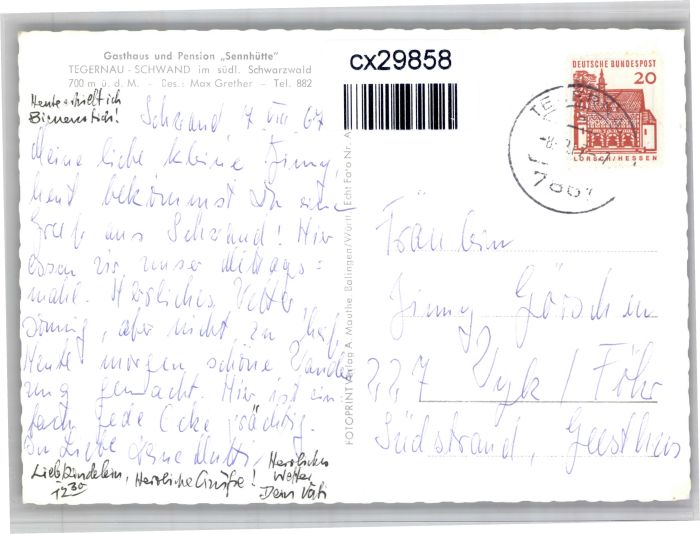 Gasthaus und Pension „Sennhütte"
TEGERNAU - SCHWAND im südl. Schwarzwald
700 m ü. d. M. - Bes.: Max Grether - Tel. 882
cx29858
DEUTSCHE BUNDESPOST
20
LORSCH/HESSEN
7861
Heute erhielt ich
Bienenstich!
Schwand, 7. VIII 67
Meine liebe kleine Jinny,
heut bekommst Du einen
Gruß aus Schwand! Hier
essen wir unser Mittags=
mahl. Herrliches Wetter,
sonnig, aber nicht zu heiß.
Heute morgen schöne Wander
ung gemacht. Hier ist ein
fach jede Ecke prächtig.
In Liebe Deine Mutti
Lieb Kindelein, Herzliche Grüße!
12³⁰
Herrliches
Wetter
Dein Vati
FOTOPRINT Verlag A. Mauthe, Balingen/Württ. Echt Foto Nr. A
Fräulein
Jinny
227 Wyk / Föhr
Südstrand,